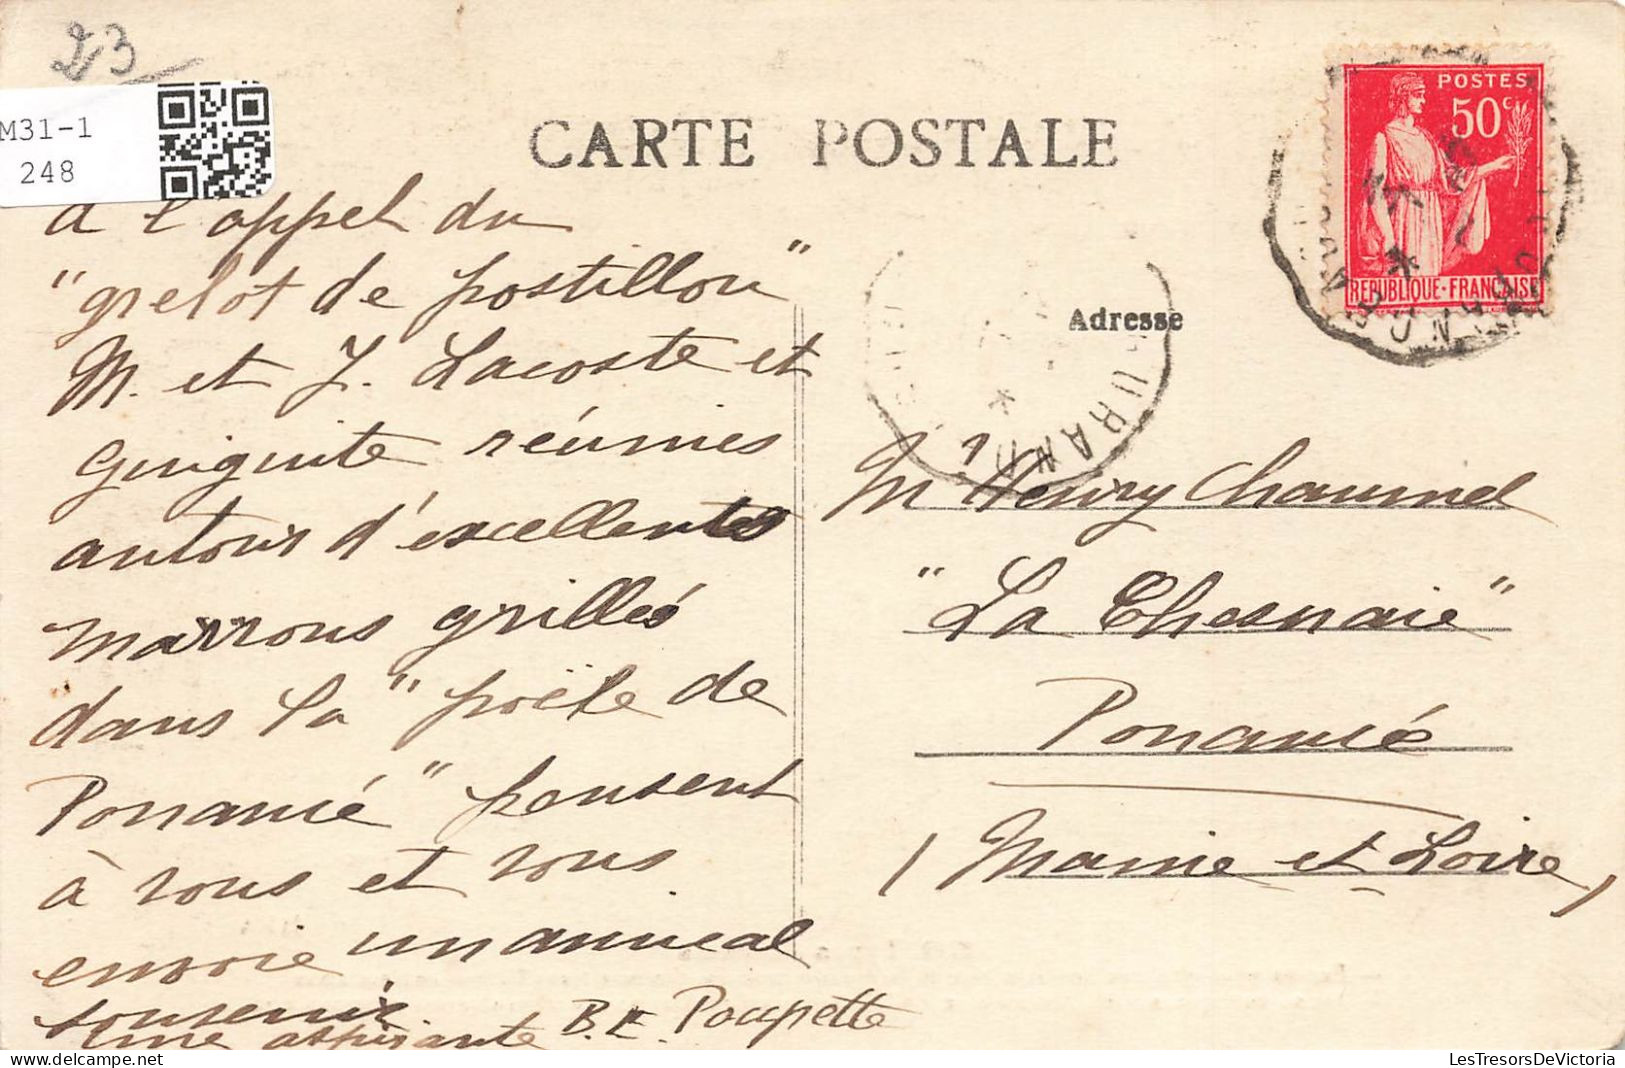 23
M31-1
248
CARTE POSTALE
POSTES
50c
REPUBLIQUE·FRANÇAISE
Adresse
a l'appel du
"grelot de postillon"
M. et J. Lacoste et
Guiguite réunies
autour d'excellentes
marrons grillés
dans la "poële de
Ponancé" pensent
à vous et vous
envoie un amical
souvenir
Une aspirante B.E. Poupette
Mr Henry Chaumel
"La Chesnaie"
Ponancé
(Maine et Loire)
LesTresorsDeVictoria